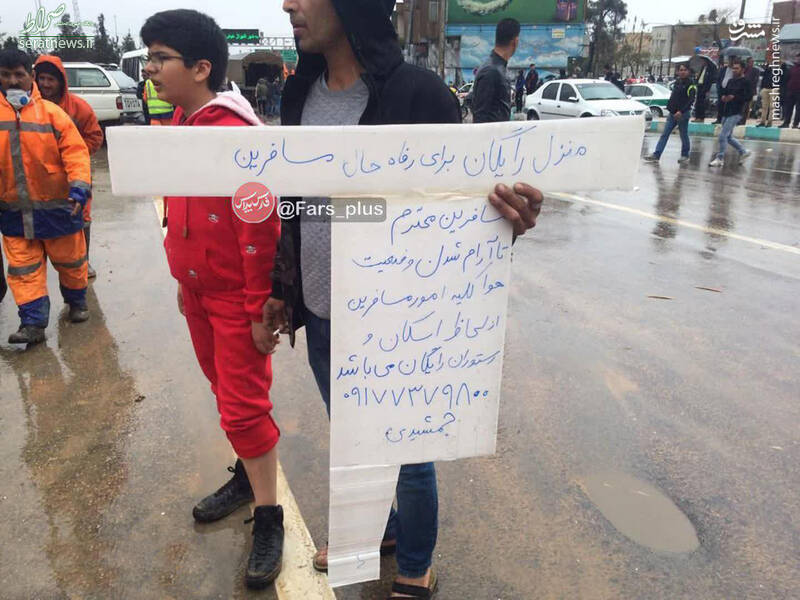 منزل رایگان برای رفاه حال مسافرین
مسافرین محترم
تا آرام شدن وضعیت
هوا کلیه امور مسافرین
از لحاظ اسکان و
رستوران رایگان می باشد
۰۹۱۷۷۳۷۹۸۰۰
جمشیدی
@Fars_plus
فارس پلاس
صراط
seratnews.ir
مشرق
mashreghnews.ir